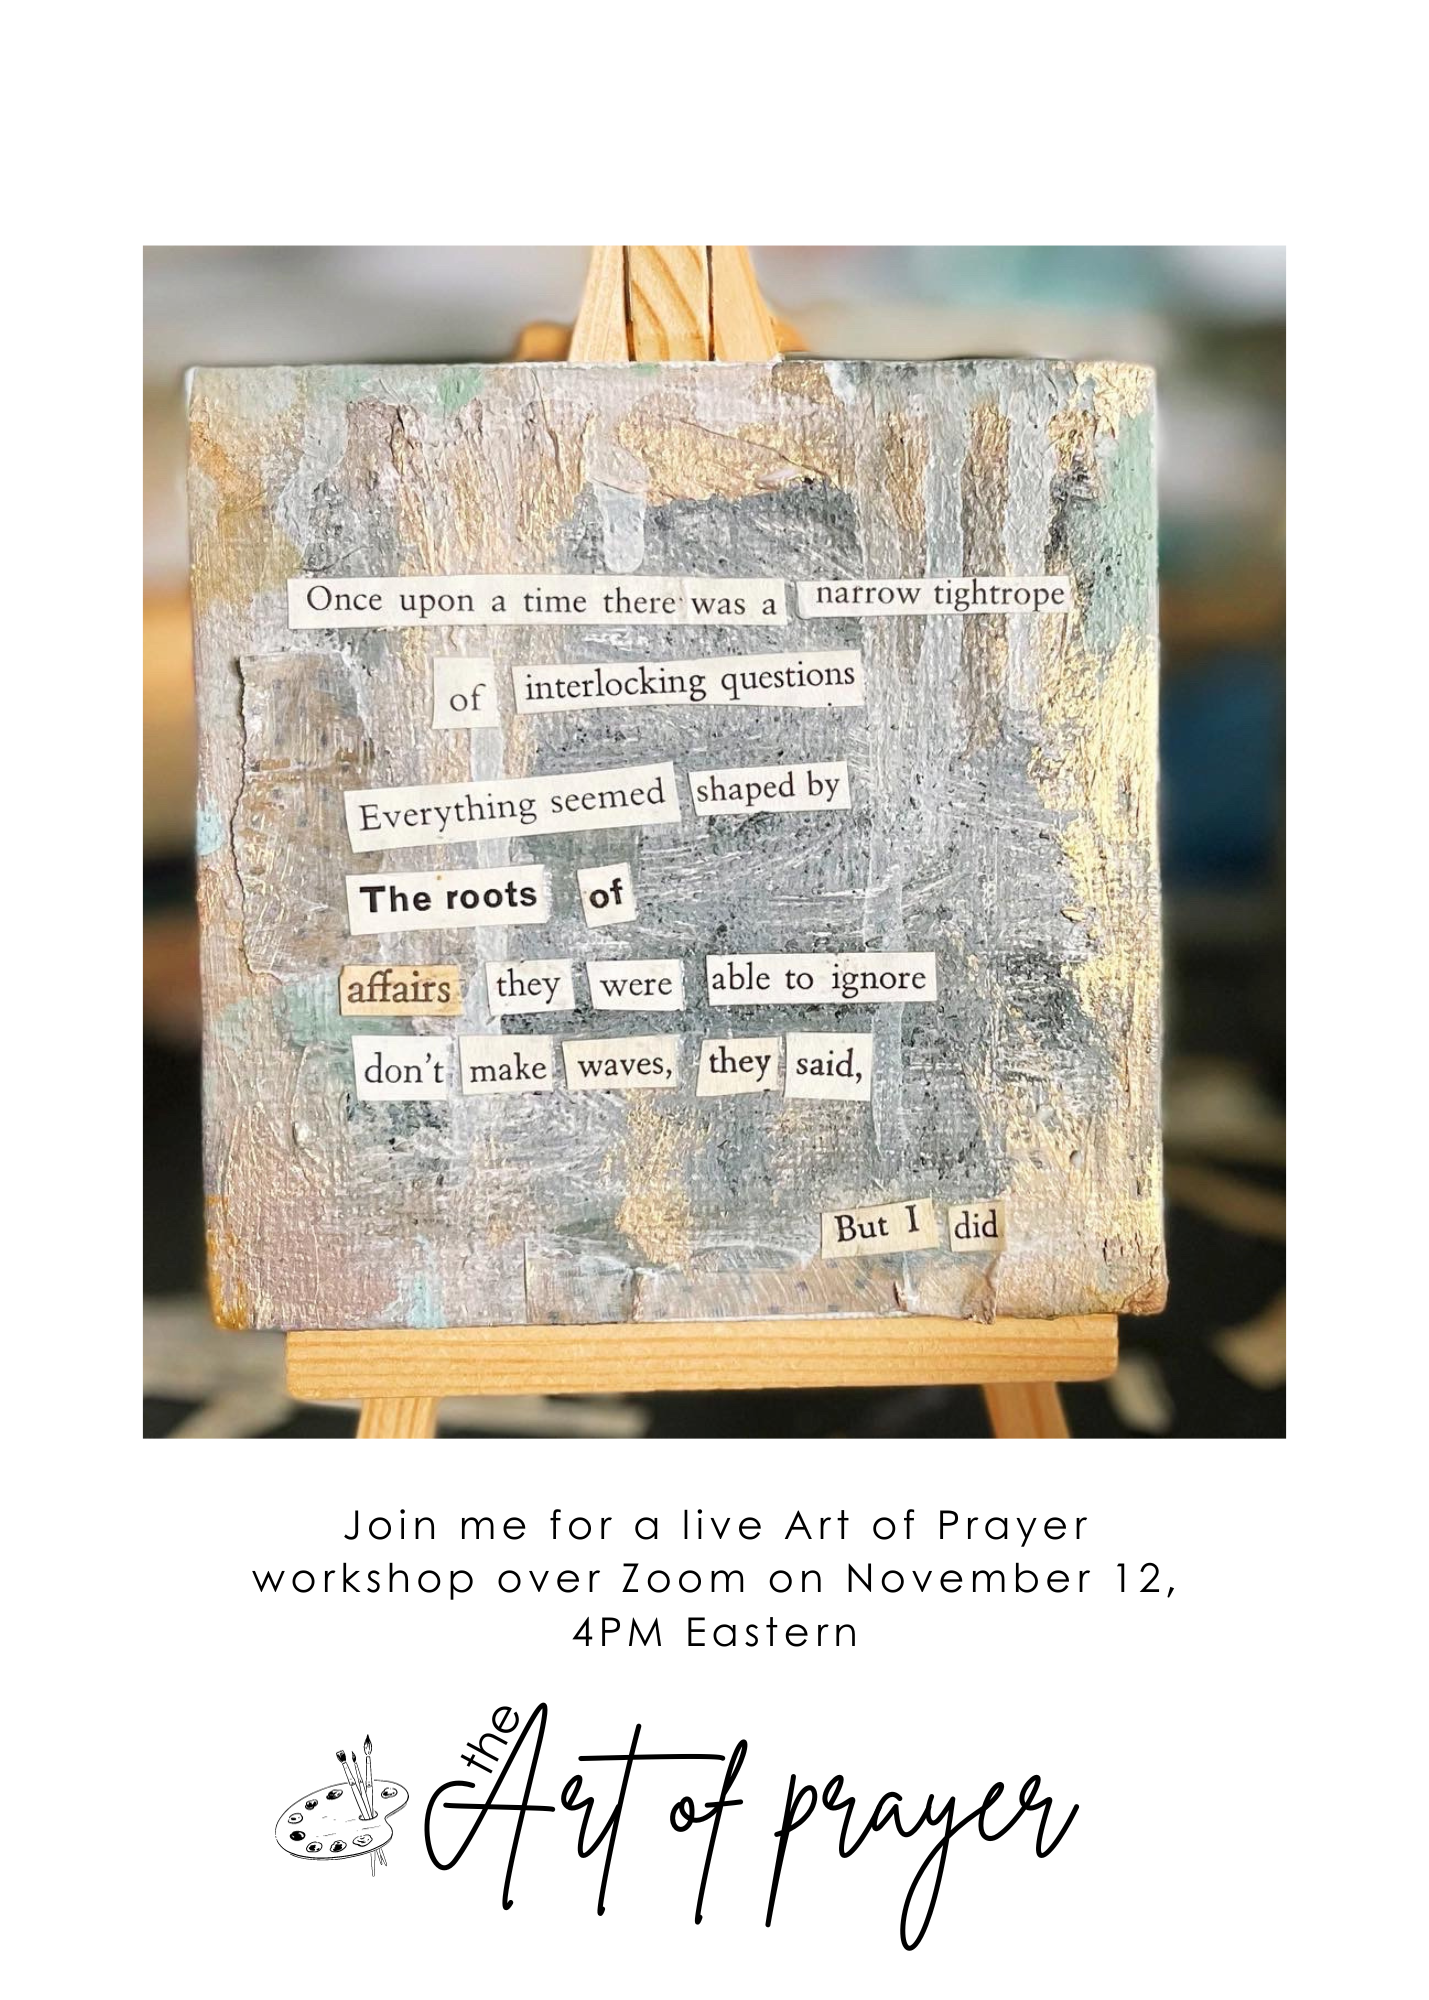 Once upon a time there was a narrow tightrope
of interlocking questions
Everything seemed shaped by
The roots of
affairs they were able to ignore
don't make waves, they said,
But I did
Join me for a live Art of Prayer
workshop over Zoom on November 12,
4PM Eastern
the Art of prayer